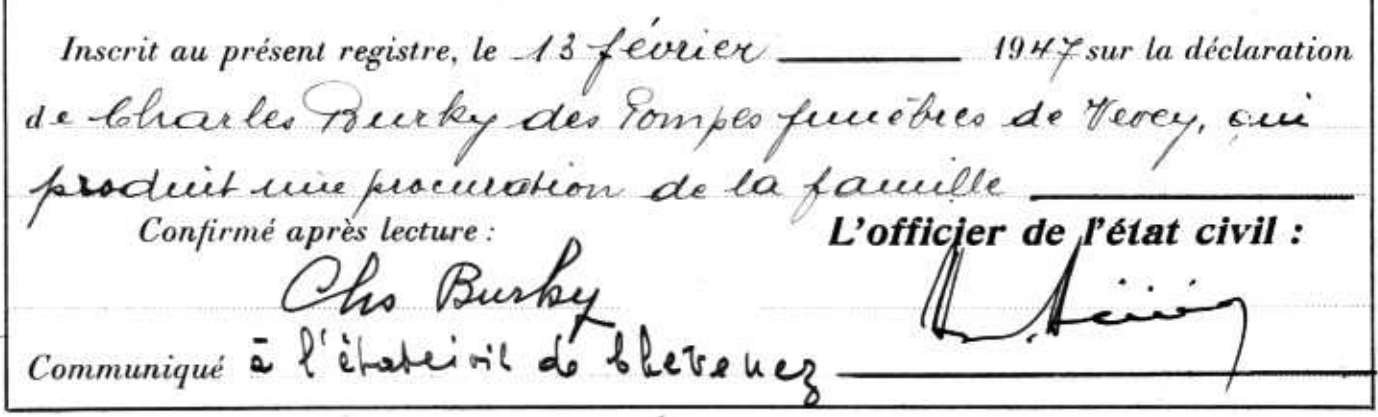 Inscrit au présent registre, le 13 février 1947 sur la déclaration
de Charles Burky des Pompes funèbres de Vevey, qui
produit une procuration de la famille
Confirmé après lecture : L'officier de l'état civil :
Chs Burky
Communiqué à l'état civil de Chevenez